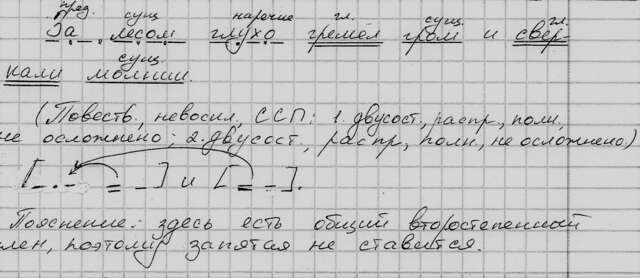 пред. сущ. наречие гл. сущ. гл.
За лесом глухо гремел гром и свер-
сущ.
кали молнии.
(Повеств, невоскл, ССП: 1. двусост, распр, полн,
не осложнено; 2. двусост, распр, полн, не осложнено.)
[_._ = _] и [= _].
Пояснение: здесь есть общий второстепенный
лен, поэтому запятая не ставится.